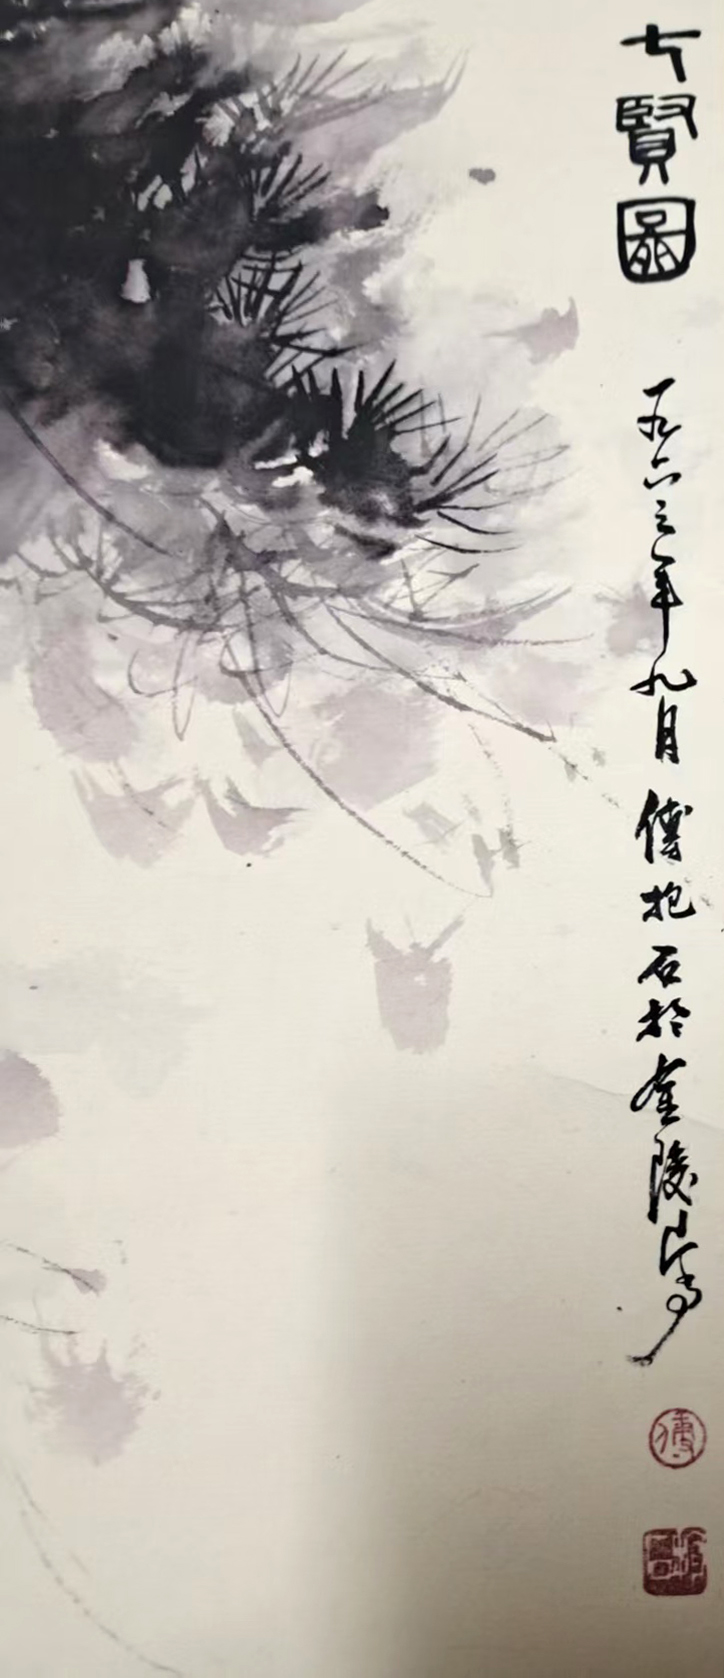 七賢圖
一九六三年九月傅抱石於金陵山寫
傅